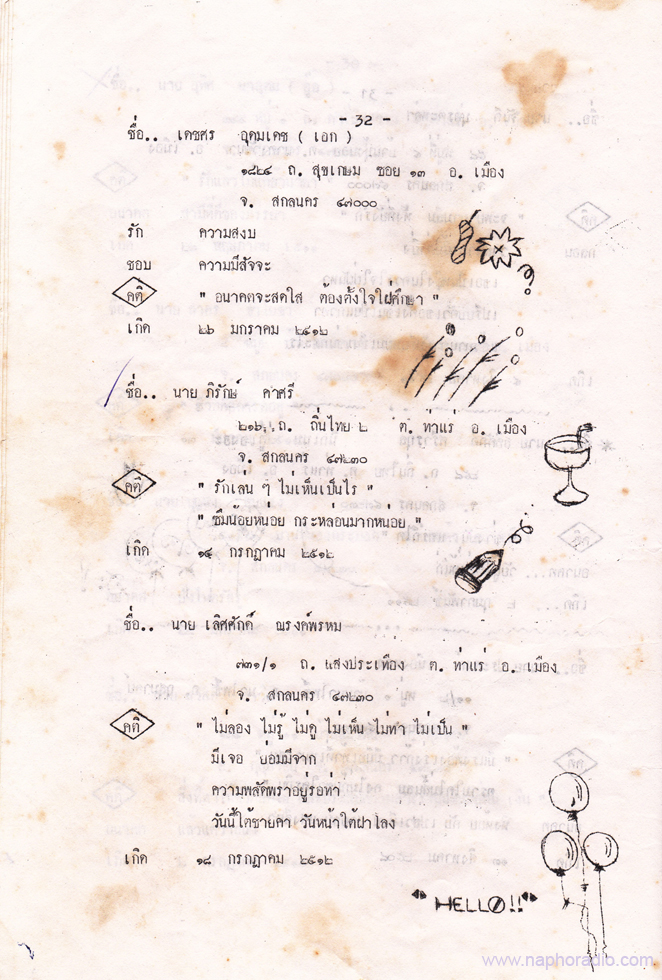 - 32 -
ชื่อ.. เดชศร อุดมเดช ( เอก )
๑๘๒๔ ถ. สุขเกษม ซอย ๑๓ อ. เมือง
จ. สกลนคร ๔๗๐๐๐
รัก ความสงบ
ชอบ ความมีสัจจะ
คติ " อนาคตจะสดใส ต้องตั้งใจใฝ่ศึกษา "
เกิด ๒๖ มกราคม ๒๕๑๒
ชื่อ.. นาย ภิรักษ์ คาศรี
๒๑๖ ถ. ถิ่นไทย ๒ ต. ท่าแร่ อ. เมือง
จ. สกลนคร ๔๗๒๓๐
คติ " รักเล่น ๆ ไม่เห็นเป็นไร "
" ซึมน้อยหน่อย กระหล่อนมากหน่อย "
เกิด ๑๔ กรกฎาคม ๒๕๑๒
ชื่อ.. นาย เลิศศักดิ์ ณรงค์พรหม
๗๓๑/๑ ถ. แสงประเทือง ต. ท่าแร่ อ. เมือง
จ. สกลนคร ๔๗๒๓๐
คติ " ไม่ลอง ไม่รู้ ไม่ดู ไม่เห็น ไม่ทำ ไม่เป็น "
มีเจอ ย่อมมีจาก
ความพลัดพราอยู่รอท่า
วันนี้ใต้ชายคา วันหน้าใต้ฝาโลง
เกิด ๑๘ กรกฎาคม ๒๕๑๒
HELLO!!
www.naphoradio.com